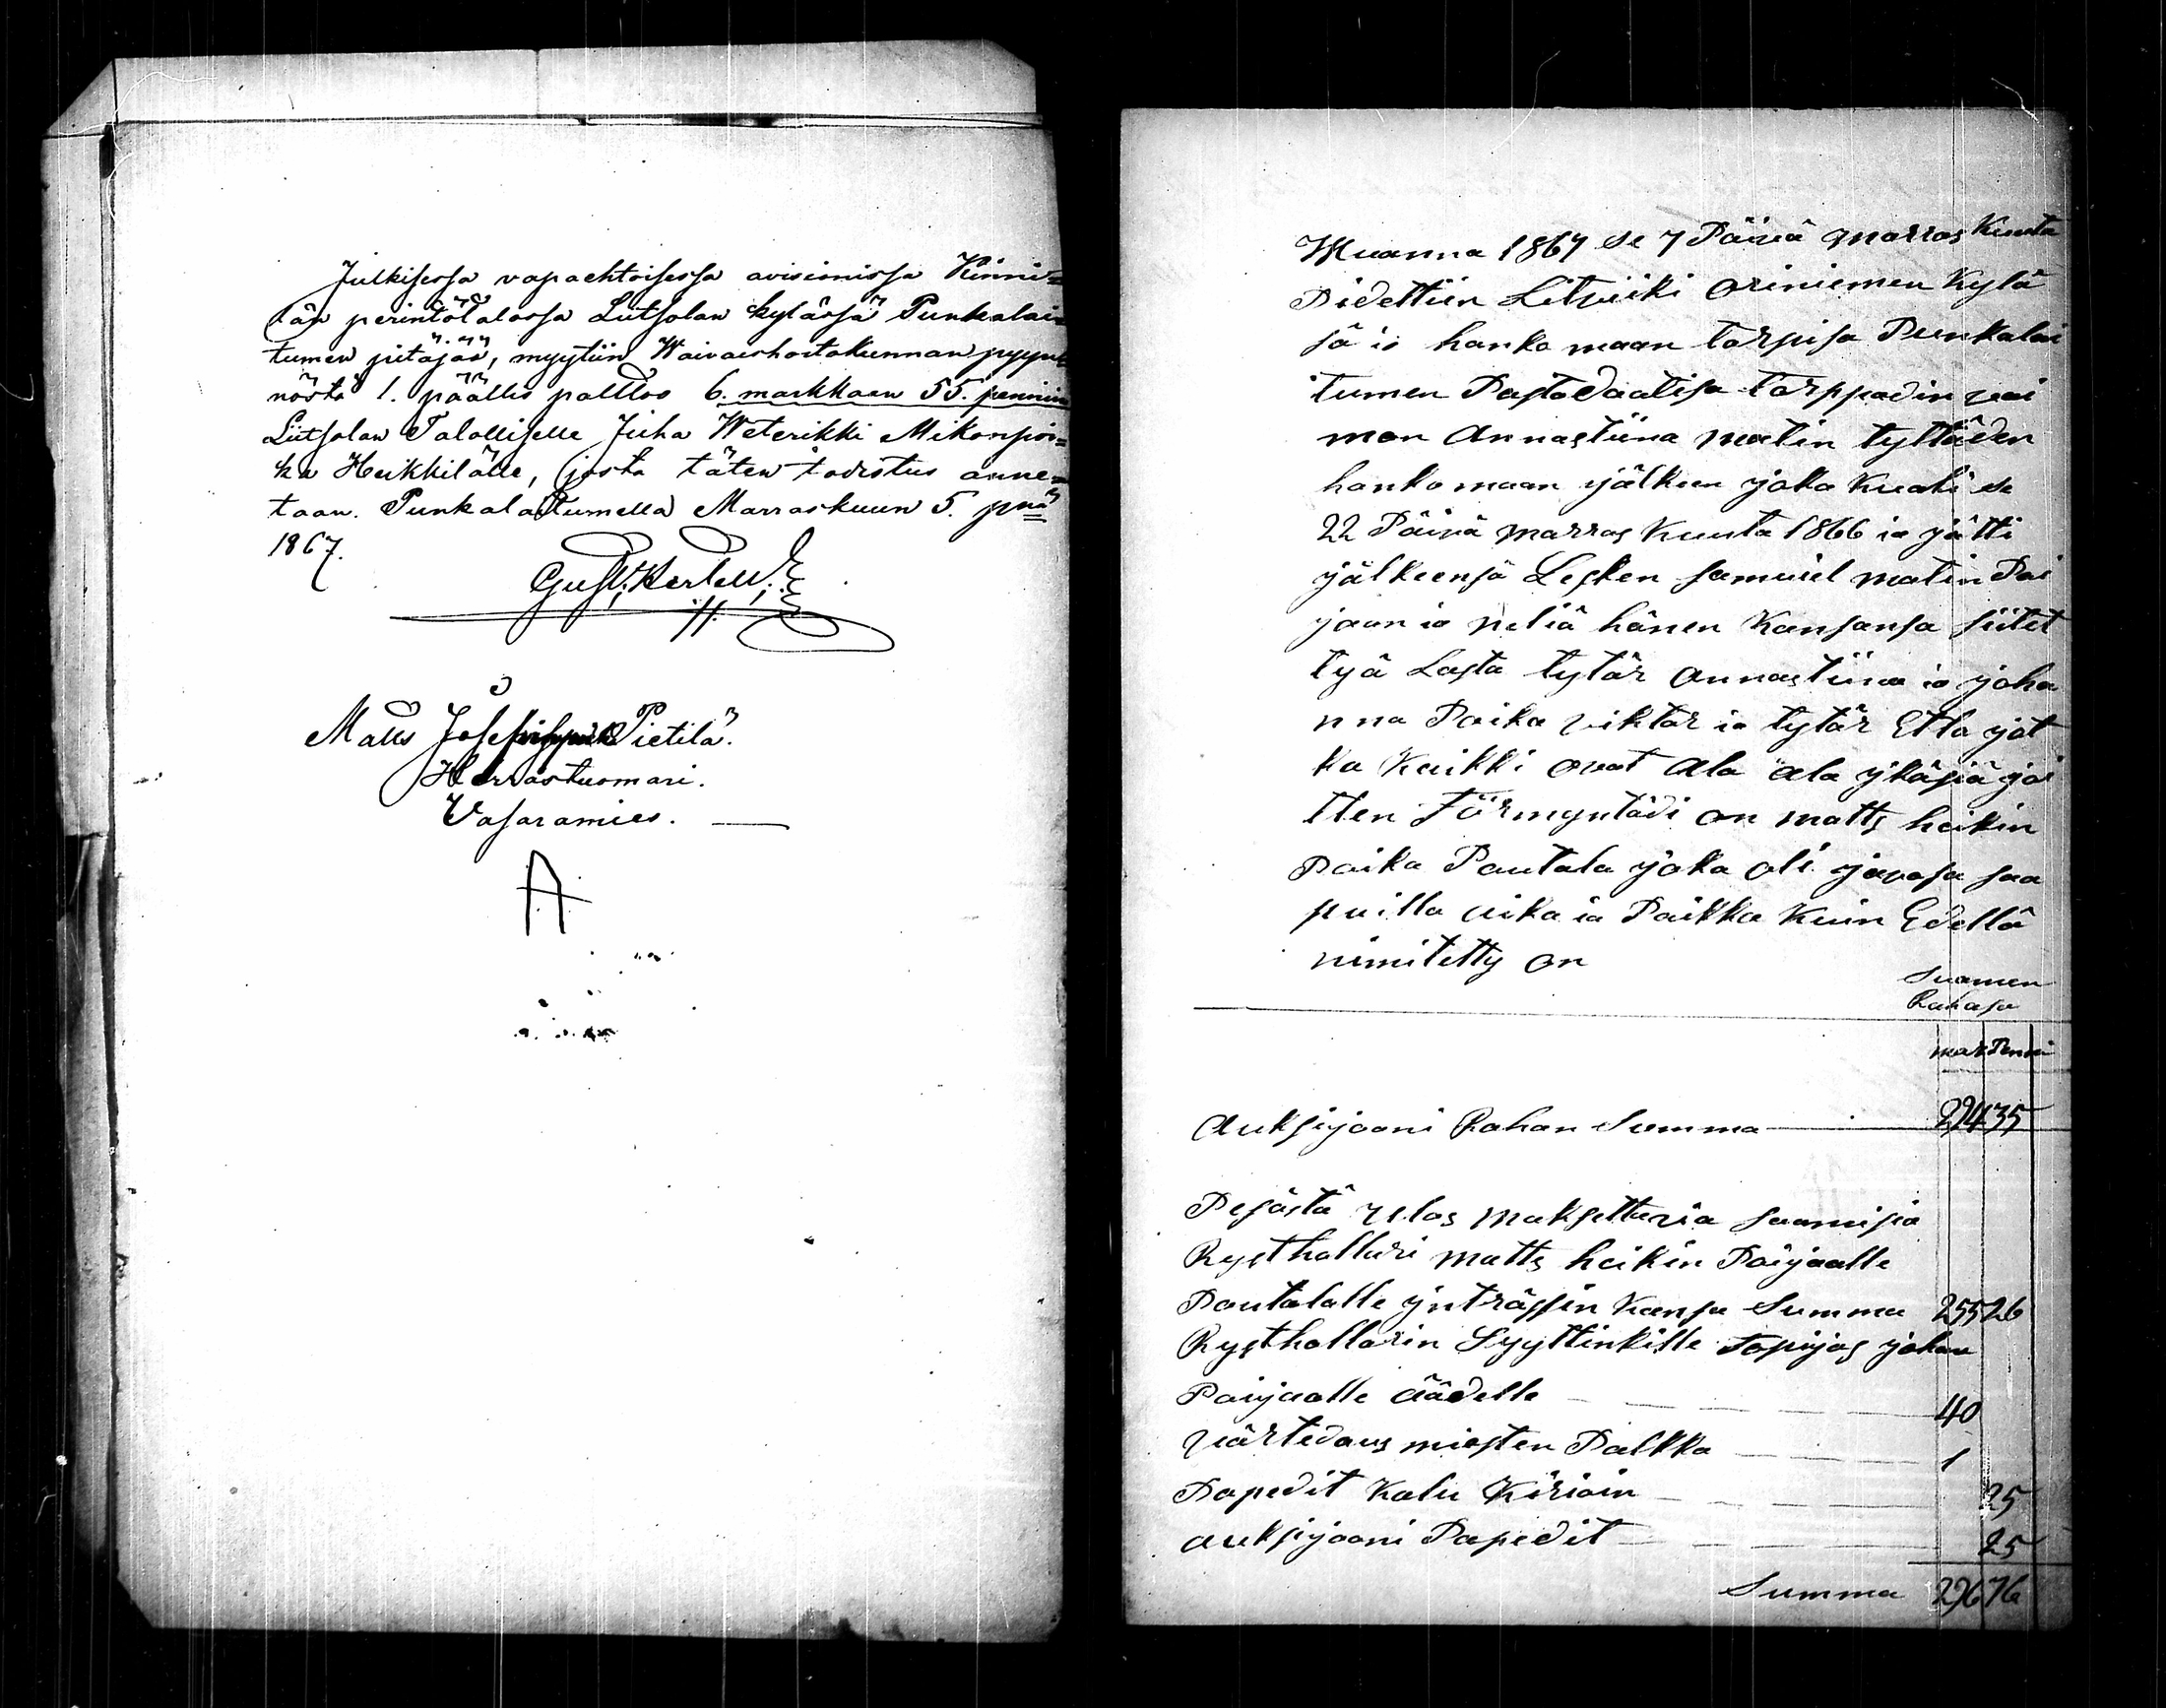 Julkisessa vapaehtoisessa avisionissa Kinni=
län perintötalossa Liitsolan kylässä Punkalai=
tumen pitäjää, myytiin Waivaishoitokunnan pyyn
nöstä 1. päällis palttoo 6. markkaan 55. pennin
Liitsolan Talolliselle Juha Weterikki Mikonpoi=
ka Heikkilälle, josta täten todistus anne=
taan. Punkalaitumella Marraskuun 5. pnä
1867.
Gust. Kertell.
Matts Josefinpoika Pietilä.
Herrastuomari.
Vasaramies.
A
Wuanna 1867 se 7 Päivä marras Kuuta
Pidettiin Litviiki oriniemen Kylä
sä ia hanka maan torpisa Punkalai
tumen Pastodaatisa torppadin vai
mon annastiina matin tyttäden
hanka maan jälkeen joka Kuali se
22 Päivä marras Kuuta 1866 ia jätti
jälkeensä Lesken samuiel matin Poi
jaan ia neliä hänen Kansansa siitet
tyä Lasta tytär annastiina ia joha
nna Poika viktor ia tytär Etla jot
ka Kaikki ovat ala ala ykäsiä joi
tten förmyntädi on matts heikin
Poika Pautala joka oli javosa saa
puilla aika ia Paikka Kuin Edellä
nimitetty on
Suamen
Rahasa
mar Penni
auksijooni Rahan Summa 294 35
Pesästä velos maksettavia saamisia
Rysthollari matts heikin Poijaalle
Pautalalle ynträssin Kansa Summa 255 26
Rysthollarin Syyttinkille topijas johan
Poijaalle äädelle 40
värtedaus miesten Palkka 1
Papedit Kalu Kirioin 25
auksijooni Papedit 25
Summa 296 76